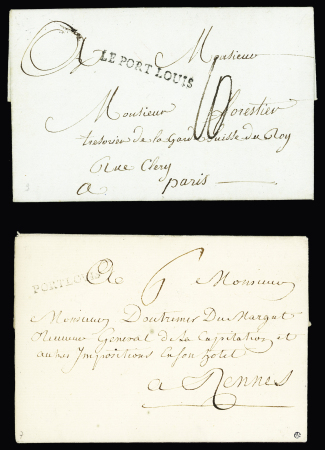 A Monsieur
LE PORT LOUIS
Monsieur forestier
tresorier de la Gard Suisse du Roy
Rue Clery
a paris
16
PORTLOUIS
A 6 Monsieur
Monsieur Doutrimer Du Margat
Receveur General de la Capitation et
autres Impositions En son hotel
a Rennes